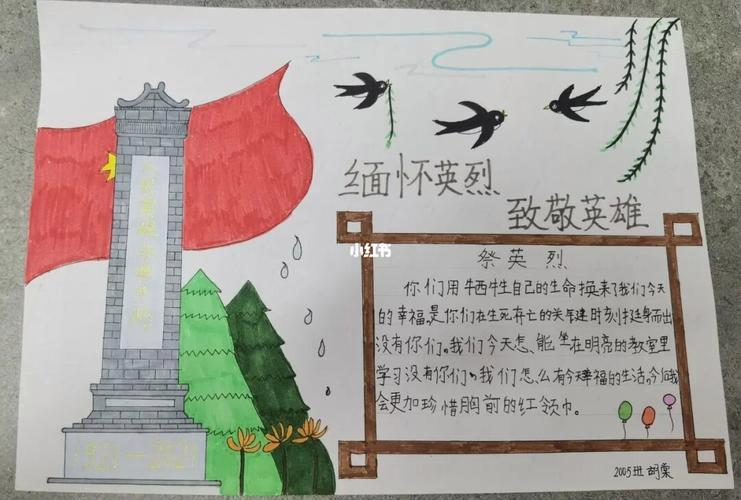 人民英雄永垂不朽
1921—2021
缅怀英烈
致敬英雄
小红书
祭英烈
你们用牺牲自己的生命换来了我们今天
的幸福,是你们在生死存亡的关键时刻挺身而出
没有你们。我们今天怎能坐在明亮的教室里
学习没有你们,我们怎么有今天幸福的生活,今后我
会更加珍惜胸前的红领巾。
2005班 胡棠